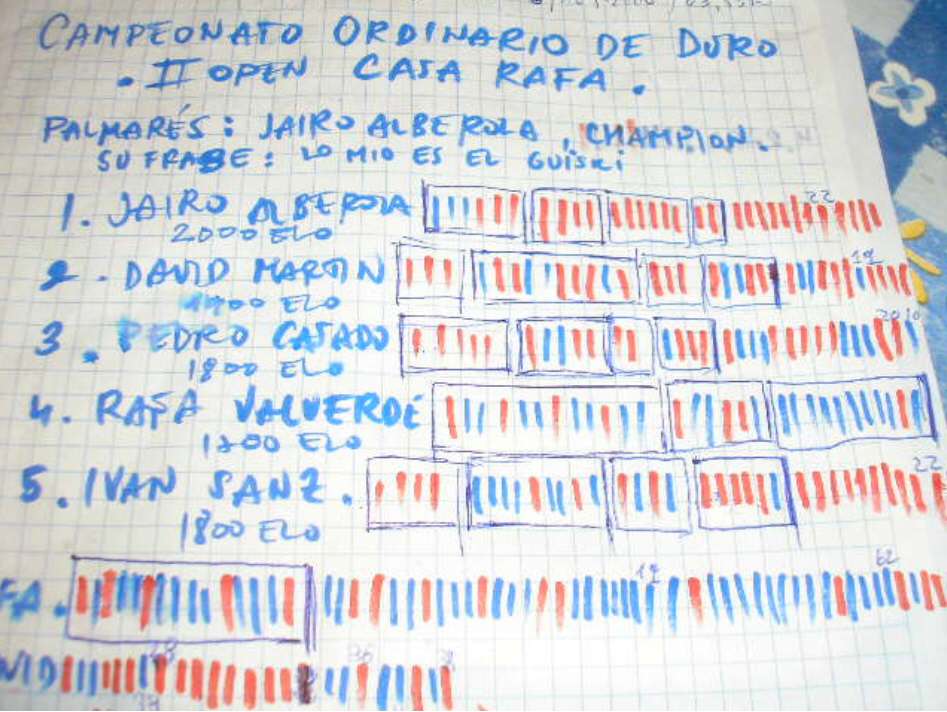 CAMPEONATO ORDINARIO DE DURO
. II OPEN CASA RAFA .
PALMARÉS: JAIRO ALBEROLA, CHAMPION.
SU FRASE: LO MIO ES EL GUISKI
1. JAIRO ALBEROLA 22
2000 ELO
2. DAVID MARTIN
ELO
3. PEDRO CASADO
1800 ELO
4. RAFA VALVERDE
ELO
5. IVAN SANZ. 22
1800 ELO
FA. 62
VID 36